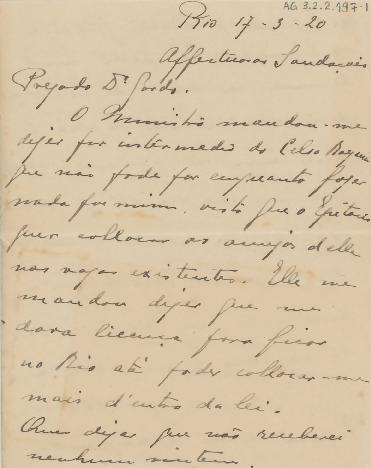 AG 3.2.2.197-1
Rio 17-3-20
Affectuosas Saudações
Prezado Dr. Gordo.
O Ministro mandou-me
dizer por intermedio do Celso Bayma
que não pode por emquanto fazer
nada por mim, visto que o Epitacio
quer collocar os amigos delle
nas vagas existentes. Elle me
mandou dizer que me
dara licença para ficar
no Rio até poder collocar-me
mais d'entro da lei.
Quer dizer que não receberei
nenhum vintem.